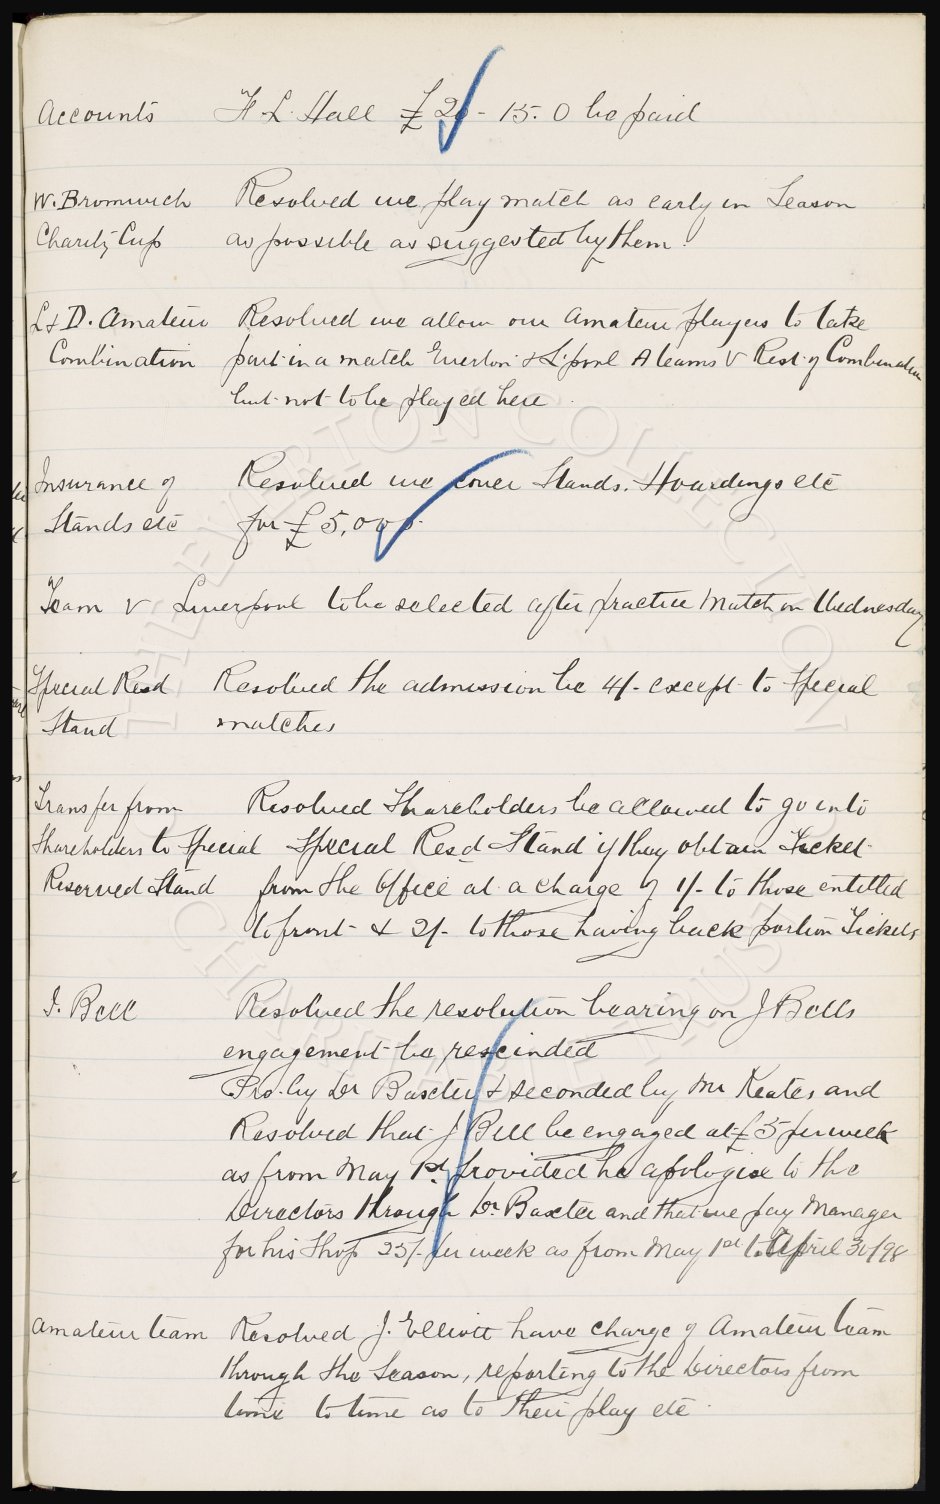 Accounts F. L. Hall £20-15.0 be paid
W. Bromwich Resolved we play match as early in Season
Charity Cup as possible as suggested by them.
L & D. Amateur Resolved we allow our Amateur players to take
Combination part in a match Everton & L'pool A teams V Rest of Combination
but not to be played here.
Insurance of Resolved we cover Stands. Hoardings etc
Stands etc for £5,000.
Team v Liverpool to be selected after practice Match on Wednesday
Special Resd Resolved the admission be 4/- except to Special
Stand matches
Transfer from Resolved Shareholders be allowed to go into
Shareholders to Special Special Resd Stand if they obtain Ticket
Reserved Stand from the Office at a charge of 1/- to those entitled
to front & 2/- to those having back portion Tickets
J. Bell Resolved the resolution bearing on J Bells
engagement be rescinded
Pro. by Dr Baxter & seconded by Mr Keates and
Resolved that J Bell be engaged at £5 per week
as from May 1st provided he apologise to the
Directors through Dr. Baxter and that we pay Manager
for his Shop 25/- per week as from May 1st to April 30/98
Amateur team Resolved J. Elliott have charge of Amateur team
through the Season, reporting to the Directors from
time to time as to their play etc.
THE EVERTON COLLECTION
CHARITABLE TRUST